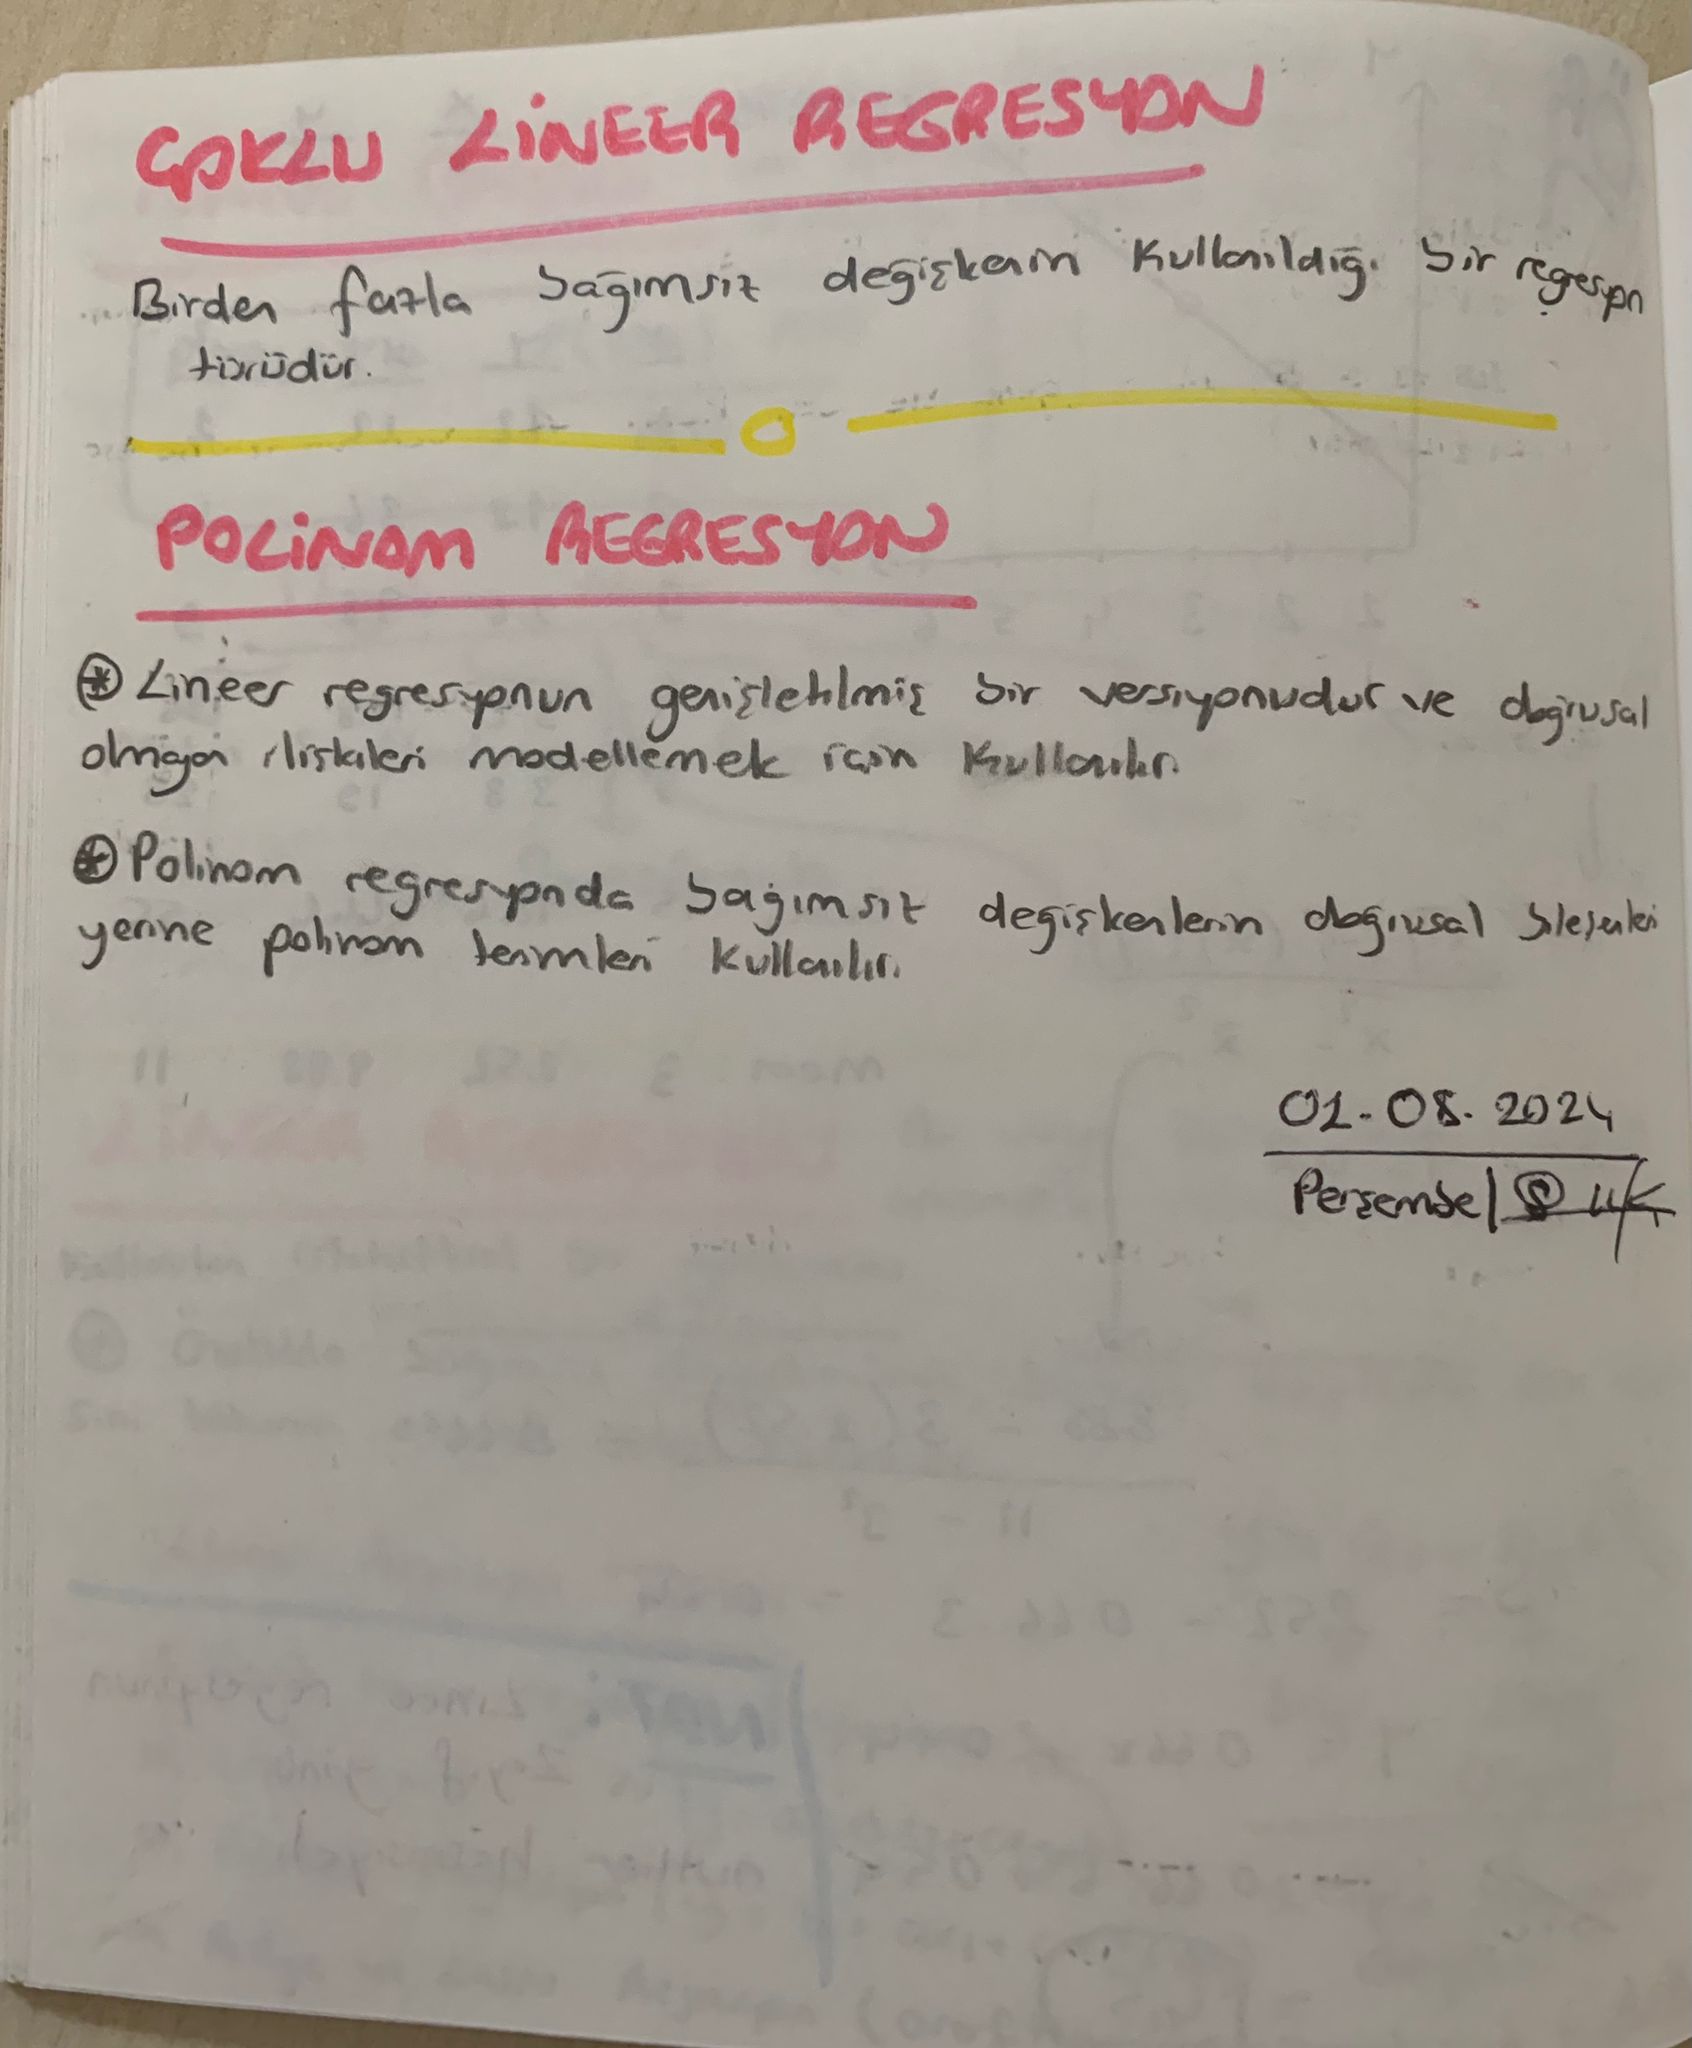 ÇOKLU LİNEER REGRESYON
Birden fazla bağımsız değişkenin kullanıldığı bir regresyon
türüdür.
POLİNOM REGRESYON
* Lineer regresyonun genişletilmiş bir versiyonudur ve doğrusal
olmayan ilişkileri modellemek için kullanılır.
* Polinom regresyonda bağımsız değişkenlerin doğrusal bileşenleri
yerine polinom terimleri kullanılır.
01.08.2024
Perşembe